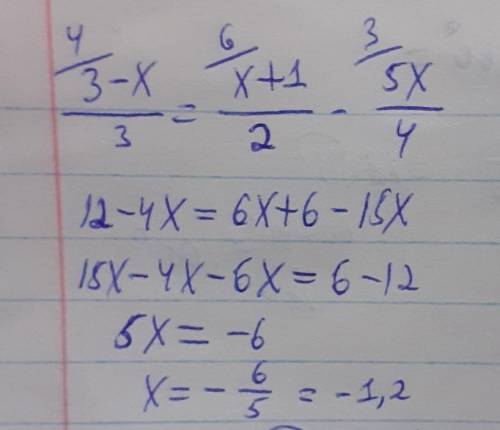 4/ 6/ 3/
(3-x)/3 = (x+1)/2 - 5x/4
12-4x=6x+6-15x
15x-4x-6x=6-12
5x=-6
x=-6/5=-1,2